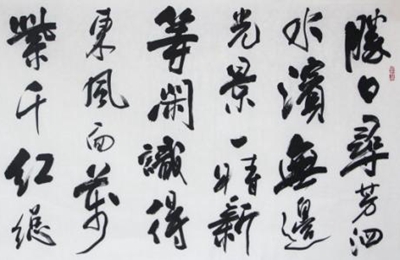 勝日尋芳泗
水濱無邊
光景一時新
等閑識得
東風面萬
紫千紅總